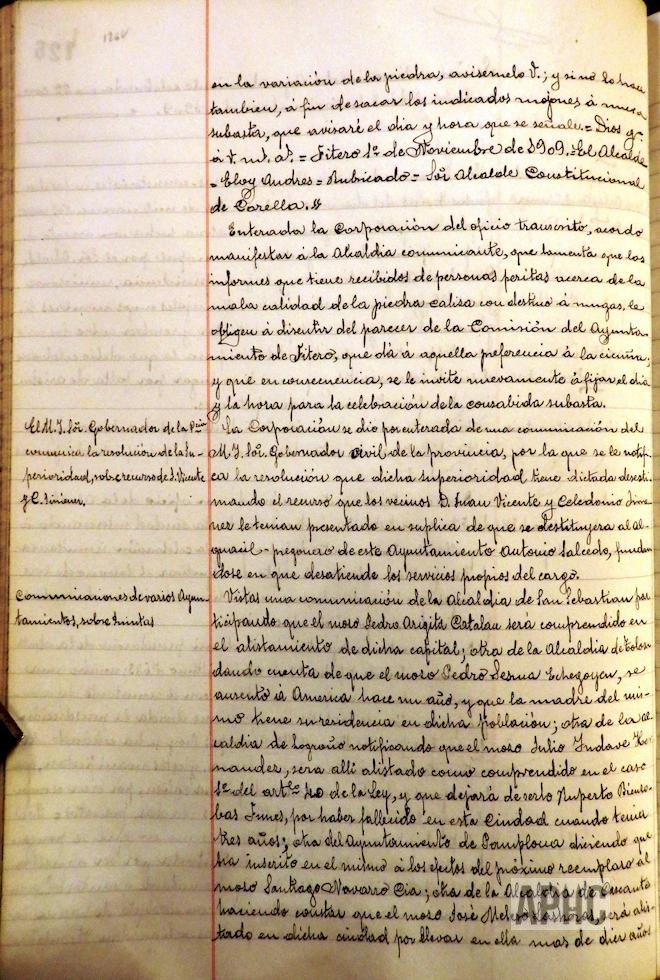 en la variación de la piedra, avisernelo V.; y si no lo hace
tambien, á fin de sacar los indicados mojones á nueva
subasta, que avisaré el dia y hora que se señale.= Dios g.
á V. m.s a.s = Fitero 1º de Noviembre de 1909.= El Alcalde
= Eloy Andres = Rubicado = Sor. Alcalde Constitucional
de Corella.
Enterada la Corporación del oficio trascrito, acordó
manifestar á la Alcaldia comunicante, que lamenta que los
informes que tiene recibidos de personas peritas acerca de la
mala calidad de la piedra calisa con destino á mugas, le
obligen á disentir del parecer de la Comisión del Ayunta-
miento de Fitero, que dá á aquella preferencia á la
y que en consecuencia, se le invite nuevamente á fijar el dia
y la hora para la celebración de la consabida subasta.
El M. I. Sor. Gobernador de la Pcia
comunica la resolución de la Su-
perioridad, sobre recurso de J. Vicente
y C. Jimenez.
La Corporación se dio por enterada de una comunicación del
M. I. Sor. Gobernador civil de la provincia, por la que se le notifi-
ca la resolución que dicha superioridad tiene dictada desesti-
mando el recurso que los vecinos D. Juan Vicente y Celedonio Jime-
nez le tenian presentado en suplica de que se destituyera al al-
guacil-pregonero de este Ayuntamiento Antonio Salcedo, fundan-
dose en que desatiende los servicios propios del cargo.
Comunicaciones de varios Ayun-
tamientos, sobre quintas
Vistas una comunicación de la Alcaldia de San Sebastian par-
ticipando que el moso Pedro Arigita Catalan será comprendido en
el alistamiento de dicha capital; otra de la Alcaldia de Tolosa
dando cuenta de que el moso Pedro Sesma Echegoyen, se
ausentó á America hace un año, y que la madre del mis-
mo tiene su residencia en dicha población; otra de la al-
caldia de Logroño notificando que el moso Julio Indave Her-
nandez, sera alli alistado como comprendido en el caso
1º del artº 40 de la Ley, y que dejará de serlo Ruperto Bienzo-
bas Funes, por haber fallecido en esta Ciudad cuando tenia
tres años; otra del Ayuntamiento de Pamplona diciendo que
ha inscrito en el mismo á los efectos del próximo reemplazo al
moso Santiago Navarro Cia; otra de la Alcaldia de Cascante
haciendo constar que el moso José será alis-
tado en dicha ciudad por llevar en ella mas de diez años
APHC